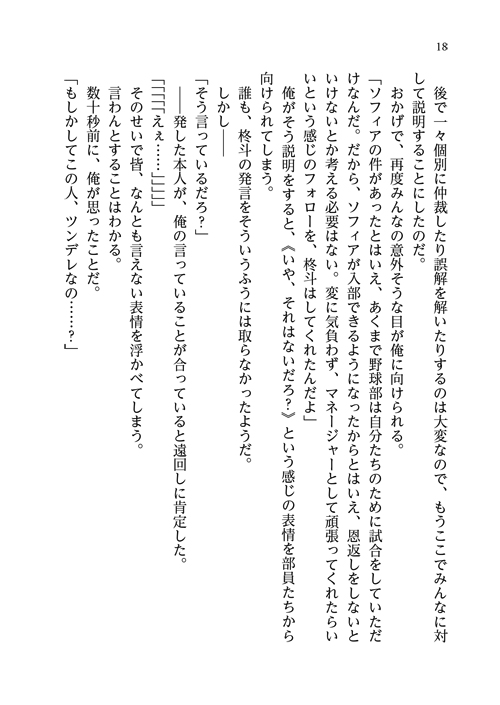 18
後で一々個別に仲裁したり誤解を解いたりするのは大変なので、もうここでみんなに対
して説明することにしたのだ。
おかげで、再度みんなの意外そうな目が俺に向けられる。
「ソフィアの件があったとはいえ、あくまで野球部は自分たちのために試合をしていただ
けなんだ。だから、ソフィアが入部できるようになったからとはいえ、恩返しをしないと
いけないとか考える必要はない。変に気負わず、マネージャーとして頑張ってくれたらい
いという感じのフォローを、柊斗はしてくれたんだよ」
俺がそう説明をすると、《いや、それはないだろ?》という感じの表情を部員たちから
向けられてしまう。
誰も、柊斗の発言をそういうふうには取らなかったようだ。
しかし――
「そう言っているだろ?」
――発した本人が、俺の言っていることが合っていると遠回しに肯定した。
「「「「えぇ……」」」」
そのせいで皆、なんとも言えない表情を浮かべてしまう。
言わんとすることはわかる。
数十秒前に、俺が思ったことだ。
「もしかしてこの人、ツンデレなの……?」